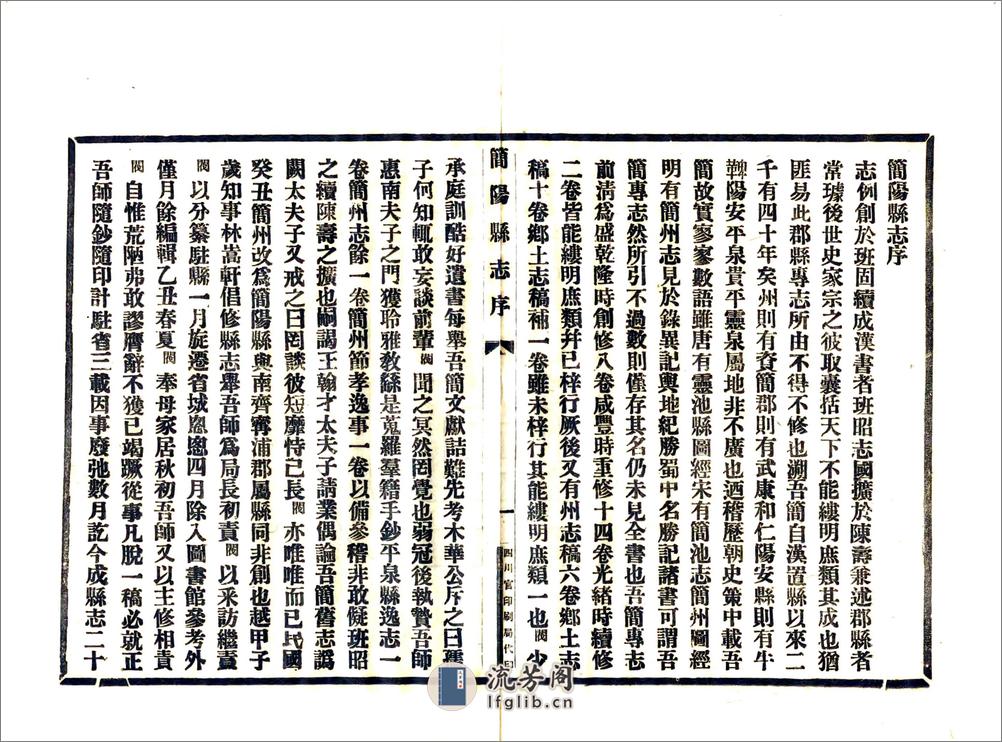 簡陽縣志序
志例創於班固續成漢書者班昭志國擴於陳壽兼述郡縣者
常璩後世史家宗之彼取囊括天下不能縷明庶類其成也猶
匪易此郡縣專志所由不得不修也溯吾簡自漢置縣以來二
千有四十年矣州則有資簡郡則有武康和仁陽安縣則有牛
鞞陽安平泉貴平靈泉屬地非不廣也迺稽歷朝史策中載吾
簡故實寥寥數語雖唐有靈池縣圖經宋有簡池志簡州圖經
明有簡州志見於錄異記輿地紀勝蜀中名勝記諸書可謂吾
簡專志然所引不過數則僅存其名仍未見全書也吾簡專志
前清為盛乾隆時創修八卷咸豐時重修十四卷光緒時續修
二卷皆能縷明庶類幷已梓行厥後又有州志稿六卷鄉土志
稿十卷鄉土志稿補一卷雖未梓行其能縷明庶類一也閟少
簡陽縣志序
一
四川官印刷局代印
承庭訓酷好遺書每舉吾簡文獻詰難先考木華公斥之曰孺
子何知輒敢妄談前輩閟聞之冥然罔覺也弱冠後執贄吾師
惠南夫子之門獲聆雅教繇是蒐羅羣籍手鈔平泉縣逸志一
卷簡州志餘一卷簡州節孝逸事一卷以備參稽非敢儗班昭
之續陳壽之擴也嗣謁王翰才太夫子請業偶論吾簡舊志譌
闕太夫子又戒之曰罔談彼短靡恃己長閟亦唯唯而已民國
癸丑簡州改為簡陽縣與南齊寗浦郡屬縣同非創也越甲子
歲知事林嵩軒倡修縣志舉吾師為局長初責閟以采訪繼責
閟以分纂駐縣一月旋遷省城悤悤四月除入圖書館參考外
僅月餘編輯乙丑春夏閟奉母家居秋初吾師又以主修相責
閟自惟荒陋弗敢謬膺辭不獲已竭蹶從事凡脫一稿必就正
吾師隨鈔隨印計駐省三載因事廢弛數月訖今成縣志二十
流芳阁
lfglib.cn